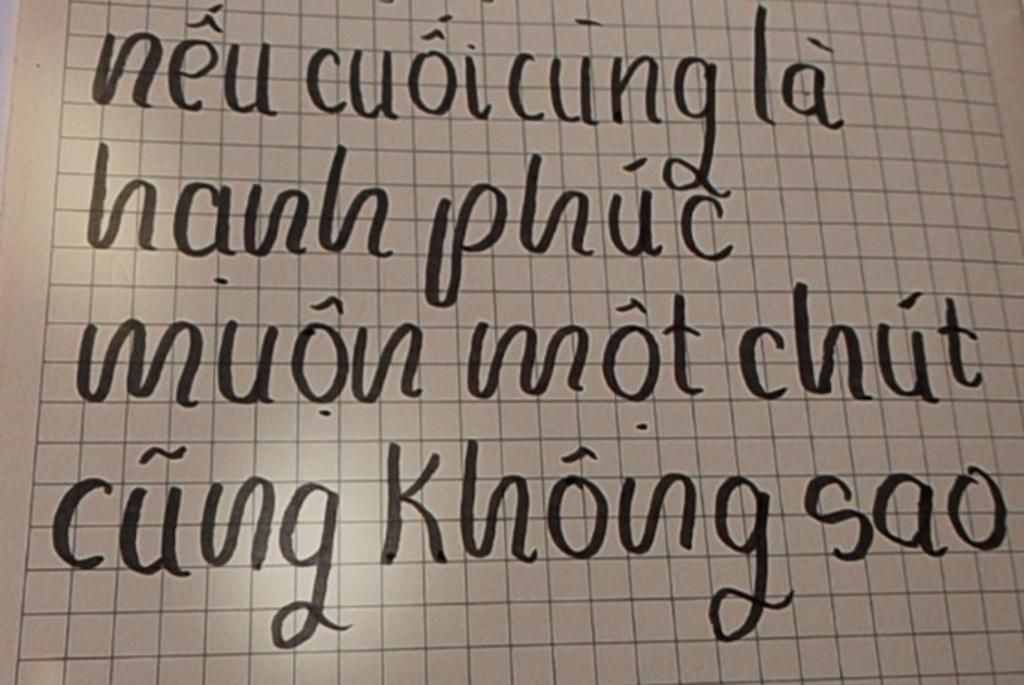 nếu cuối cùng là
hạnh phúc
muộn một chút
cũng không sao